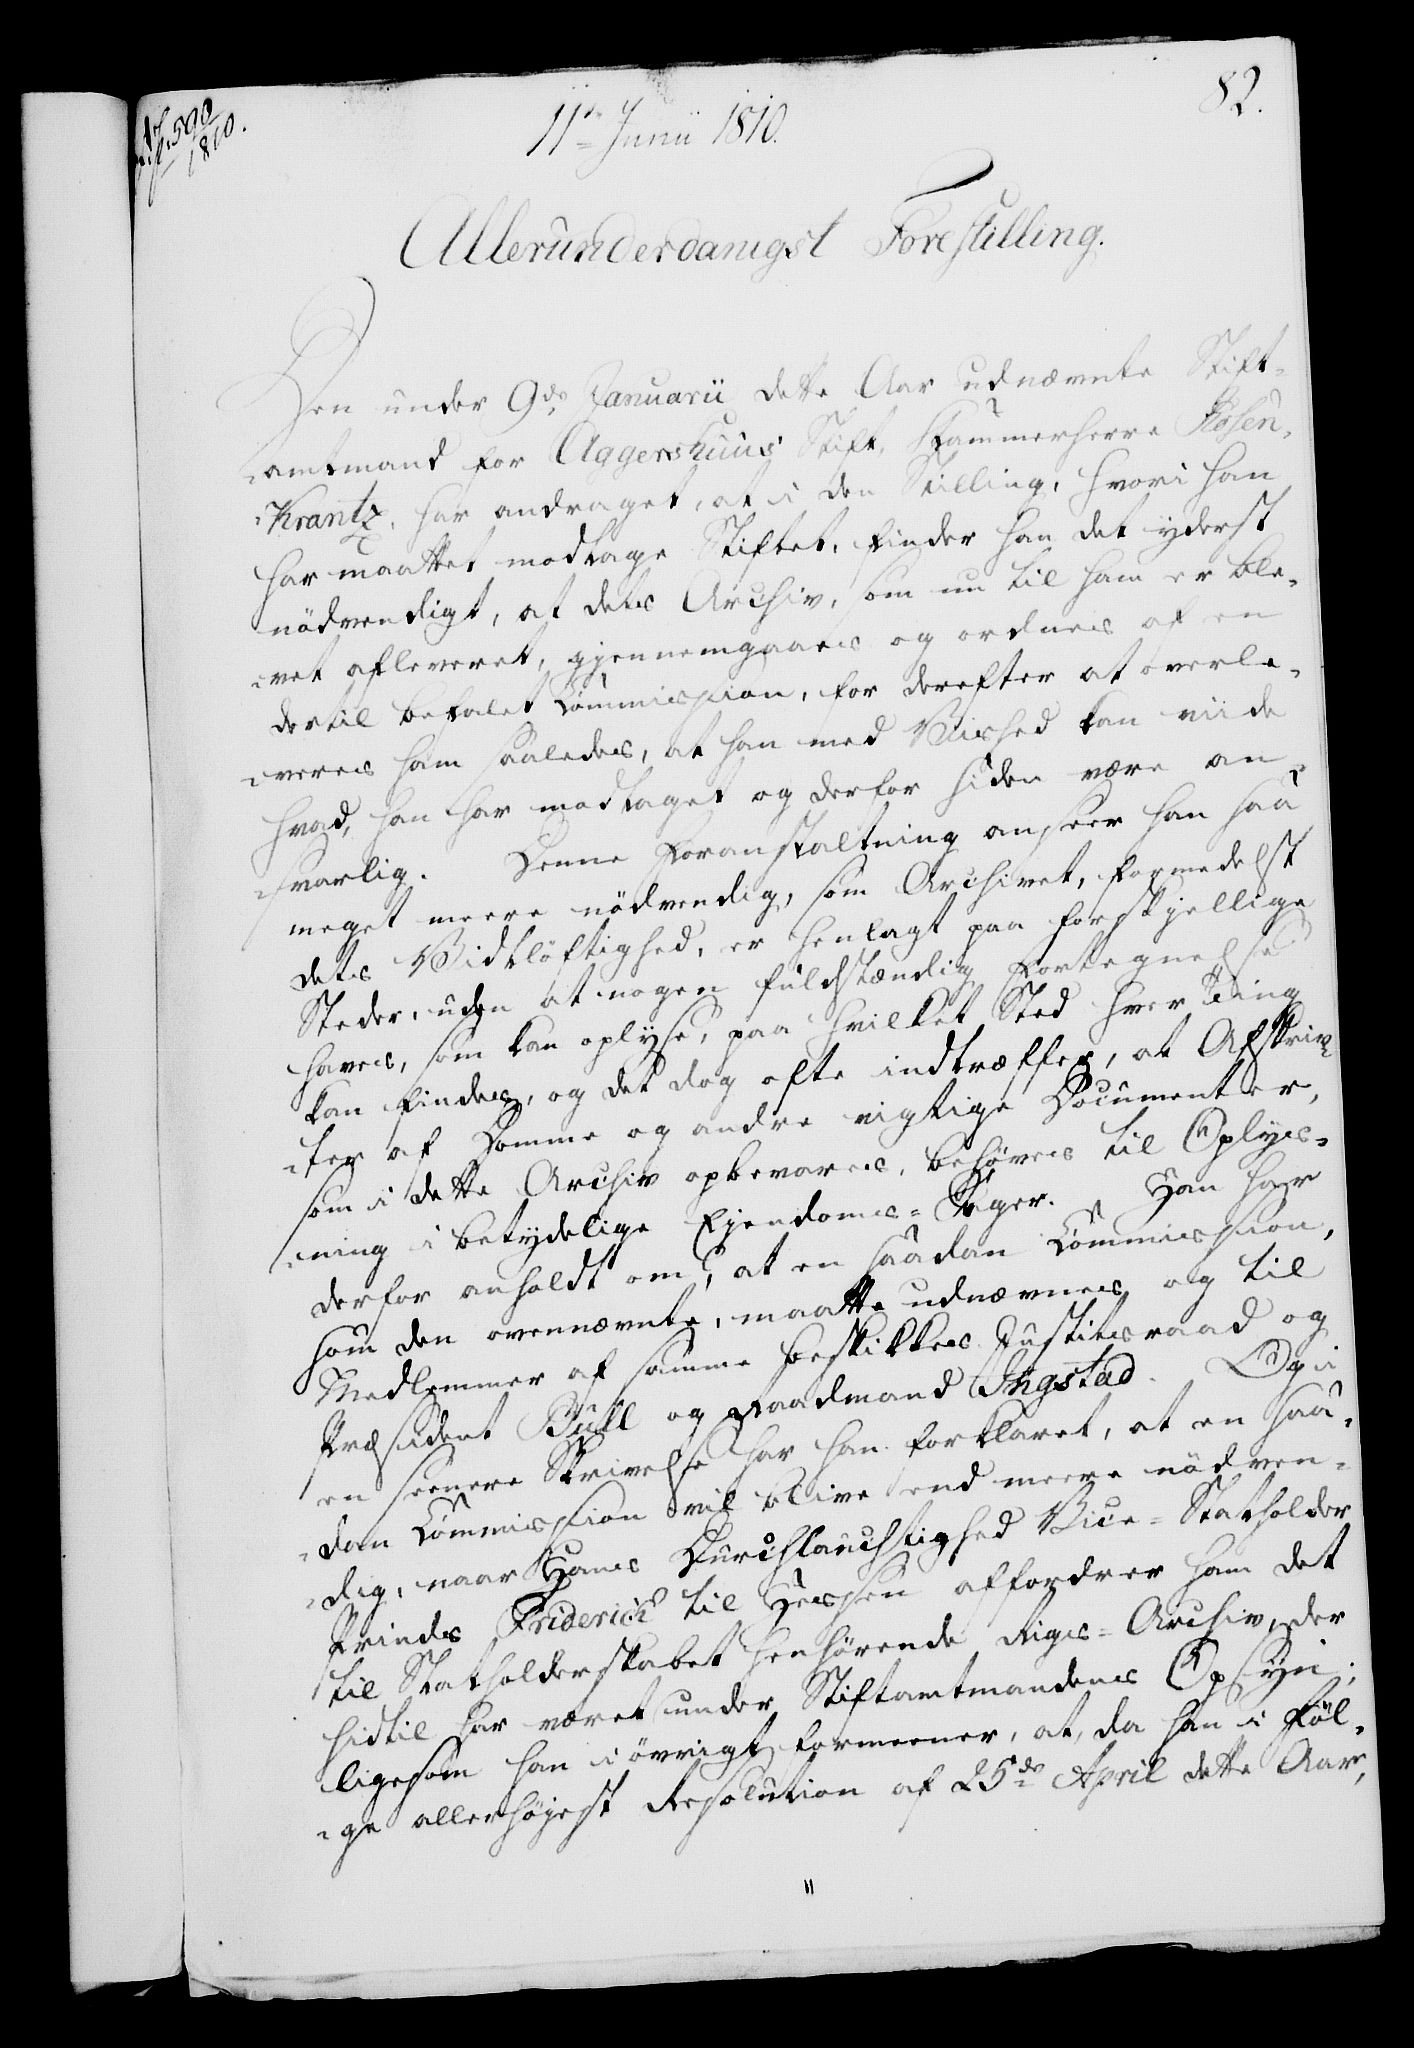 590
1810.
11te Junii 1810.
82.
Allerunderdanigst Forestilling.
Den under 9de Januarii dette Aar udnævnte Stift-
amtmand for Aggershuus Stift, Kammerherre Rosen-
Krantz, har andraget, at i den Stilling, hvori han
har maattet modtage Stiftet, finder han det yderst
nödvendigt, at dets Archiv, som nu til ham er ble-
vet afleveret, gjennemgaaes og ordnes af en
dertil befalet Commission, for derefter at overle-
veres ham saaledes, at han med Vished kan viide
hvad, han har modtaget og derfor siden være an-
svarlig. Denne Foranstaltning anseer han saa
meget meere nödvendig, som Archivet, formedelst
dets Vidtlöftighed, er henlagt paa forskjellige
Steder, uden at nogen fuldstændig Fortegnelse
haves, som kan oplyse, paa hvilket Sted hver Ting
kan findes, og det dog ofte indtræffer, at Afskriv-
ter af Domme og andre vigtige Documenter,
som i dette Archiv opbevares, behöves til Oplys-
ning i betydelige Ejendoms-Sager. Han har
derfor anholdt om, at en saadan Commission,
som den ovennævnte, maatte udnævnes og til
Medlemmer af samme beskikkes Justitsraad og
Præsident Bull og Raadmand Ingstad. Og i
en seenere Skrivelse har han forklaret, at en saa-
dan Commission vil blive end meere nödven-
dig, naar Hans Durchlauchtighed Vice-Statholder
Prinds Friderich til Hessen affordrer ham det
til Statholderskabet henhörende Riges-Archiv, der
hidtil har været under Stiftamtmandens Opsyn;
ligesom han i övrigt formeener, at, da han i Föl-
ge allerhöjest Resolution af 25de April dette Aar,